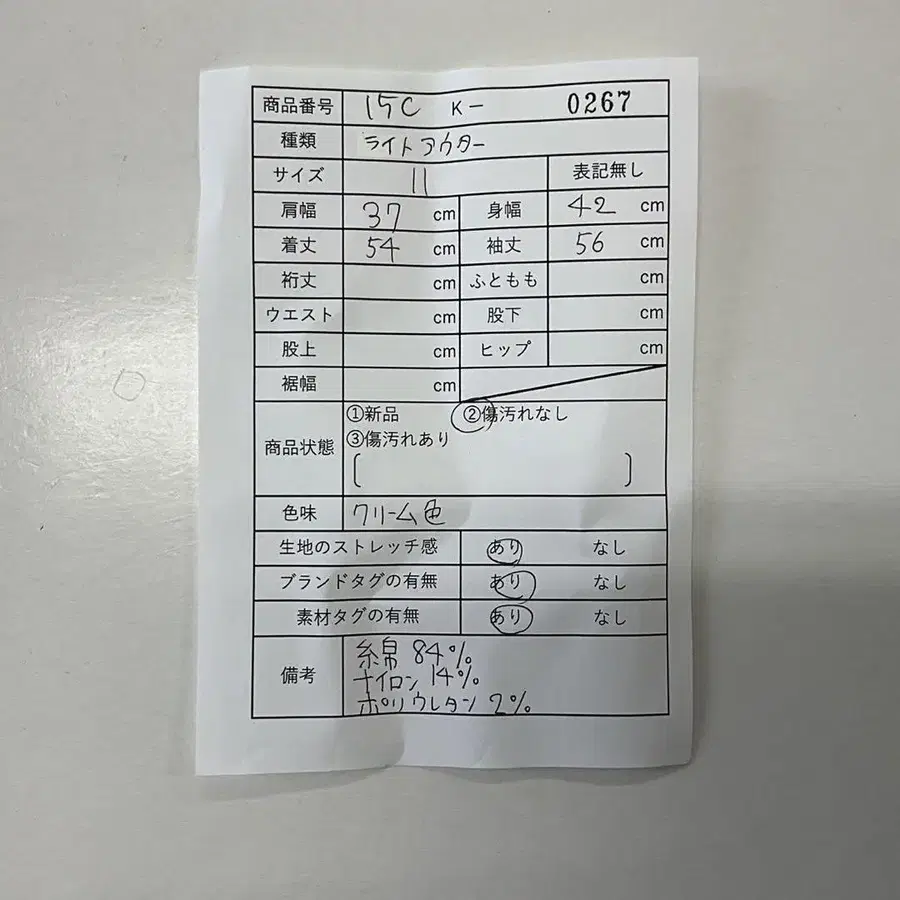 商品番号 15C K- 0267
種類 ライトアウター
サイズ 11 表記無し
肩幅 37 cm 身幅 42 cm
着丈 54 cm 袖丈 56 cm
裄丈 cm ふともも cm
ウエスト cm 股下 cm
股上 cm ヒップ cm
裾幅 cm
商品状態 ①新品 ②傷汚れなし
③傷汚れあり
( )
色味 クリーム色
生地のストレッチ感 あり なし
ブランドタグの有無 あり なし
素材タグの有無 あり なし
備考 綿 84%
ナイロン 14%
ポリウレタン 2%